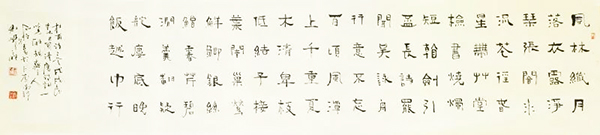 風林纖月
落衣露淨
琴張闇水
流花徑春
星帶草堂
檢書燒燭
短看劍引
盃長詩罷
聞吳詠扁
舟意不忘
百頃風潭
上千章夏
木清卑枝
低結子接
葉暗巢鶯
鮮鯽銀絲
膾香芹碧
澗羹翻疑
柁樓底晚
飯越中行